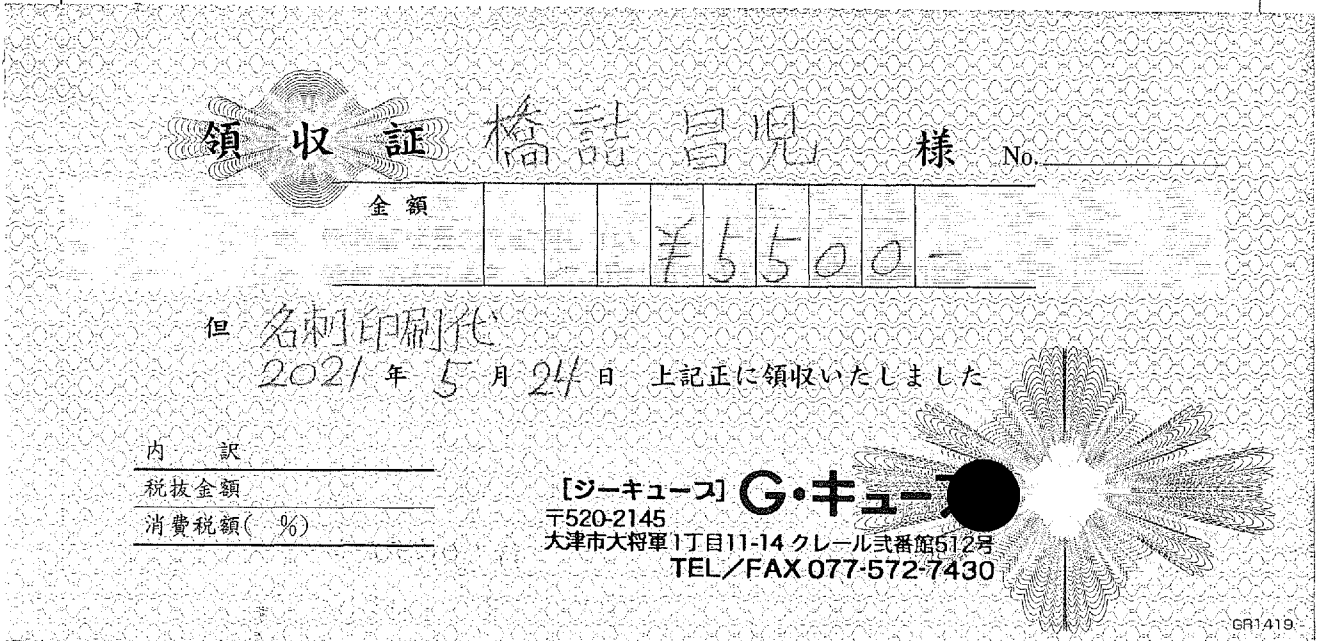 領収証 橋詰 昌児 様 No.
金額 ¥5500-
但 名刺印刷代
2021年 5月 24日 上記正に領収いたしました
内 訳
税抜金額
消費税額( %)
[ジーキューブ] G・キュー
〒520-2145
大津市大将軍1丁目11-14 クレール弐番館512号
TEL/FAX 077-572-7430
GR1419